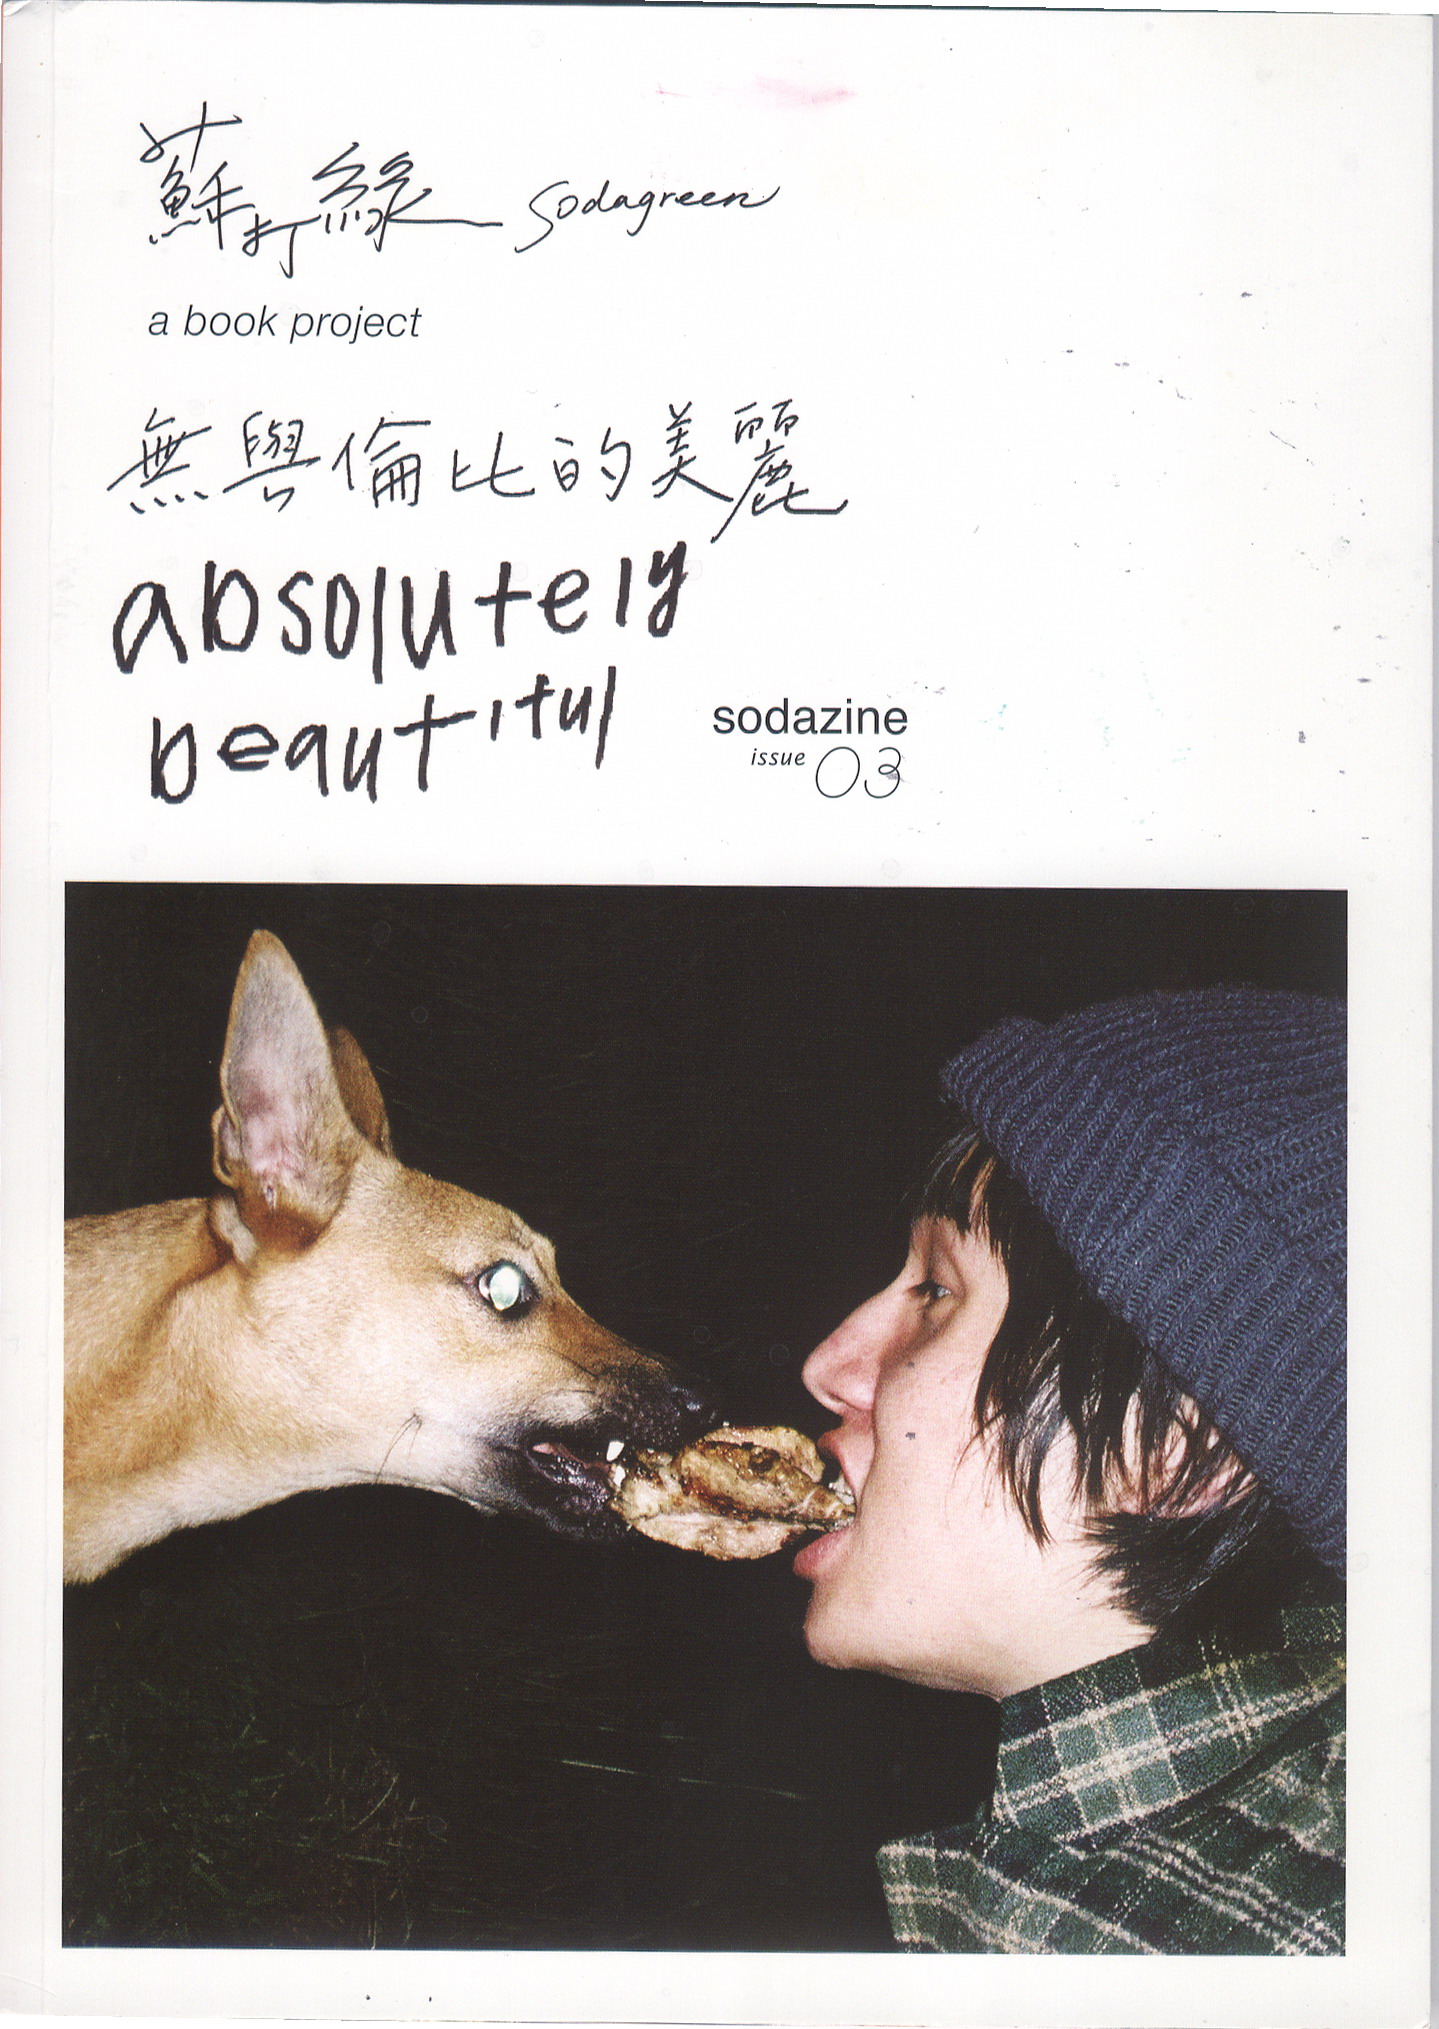 蘇打綠 sodagreen
a book project
無與倫比的美麗
absolutely
beautiful
sodazine
issue 03